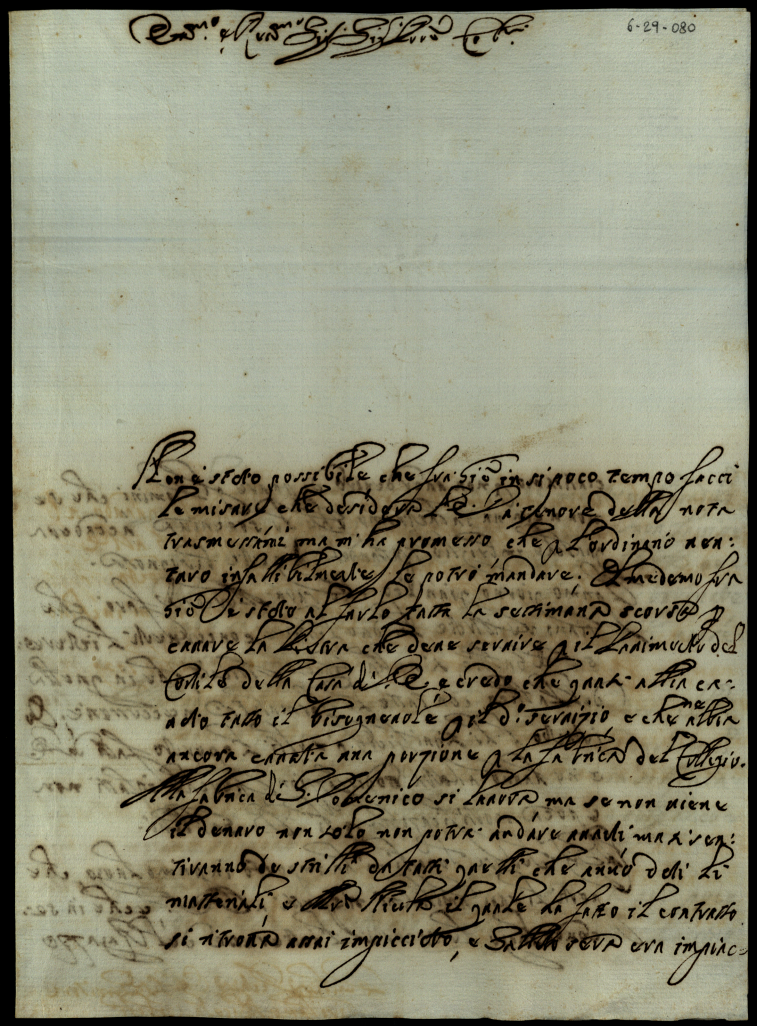 6-29-080
Em.mo e Rev.mo Sig. Sig. Pron Col.mo
Non è stato possibile che fra Giõ in si poco tempo facci
le misure che desidera V.E. a tenore della nota
trasmessami ma m'ha promesso che p l'ordinario ven:
turo infallibilmente le potrò mandare. Il medemo fra
Giõ è stato al tutta la settimana scorsa p
cavare la che deve servire p il del
Cortile della Casa di V.E. e credo che habbia ca:
vato tutto il bisognevole p il d.º servizio e che ne abbia
ancora cavata una porzione p la fabrica del Collegio.
Alla fabrica di S. Domenico si lavora ma se non viene
il denaro non solo non potrà andare avanti ma si sen:
tiranno de strilli da tutti quelli che anno dati li
materiali e il quale ha fatto il contratto
si ritrova assai impicciato, e sera era